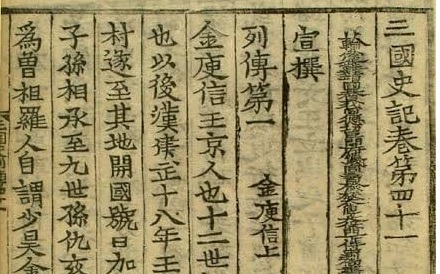 三國史記卷第四十一
宣撰
列傳第一　金庾信上
金庾信王京人也十二世
也以後漢建武十八年壬
村遂至其地開國號曰加
子孫相承至九世孫仇亥
為曾相羅人自謂少昊金